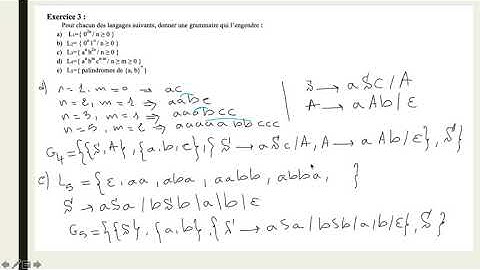 Exercice 3 :
Pour chacun des langages suivants, donner une grammaire qui l'engendre :
a) L₁={ 0²ⁿ / n ≥ 0 }
b) L₂={ 0ⁿ1ⁿ / n ≥ 0 }
c) L₃={ aⁿb²ⁿ / n ≥ 0 }
d) L₄={ aⁿbᵐcⁿ⁻ᵐ / n ≥ m ≥ 0 }
e) L₅={ palindromes de {a, b}* }
d) n = 1. m = 0 → ac
n = 2, m = 1 ⇒ aabc
n = 3, m = 1 ⇒ aaabcc
n = 5, m = 2 ⇒ aaaaabbccc
S → aSc/A
A → aAb|ε
G₄={{S,A}, {a,b,c}, {S → aSc/A, A → aAb|ε}, S}
e) L₅ = {ε, aa, aba, aabb, abba, }
S → aSa|bSb|a|b|ε
G₅={{S}, {a,b}, {S → aSa|bSb|a|b|ε}, S}